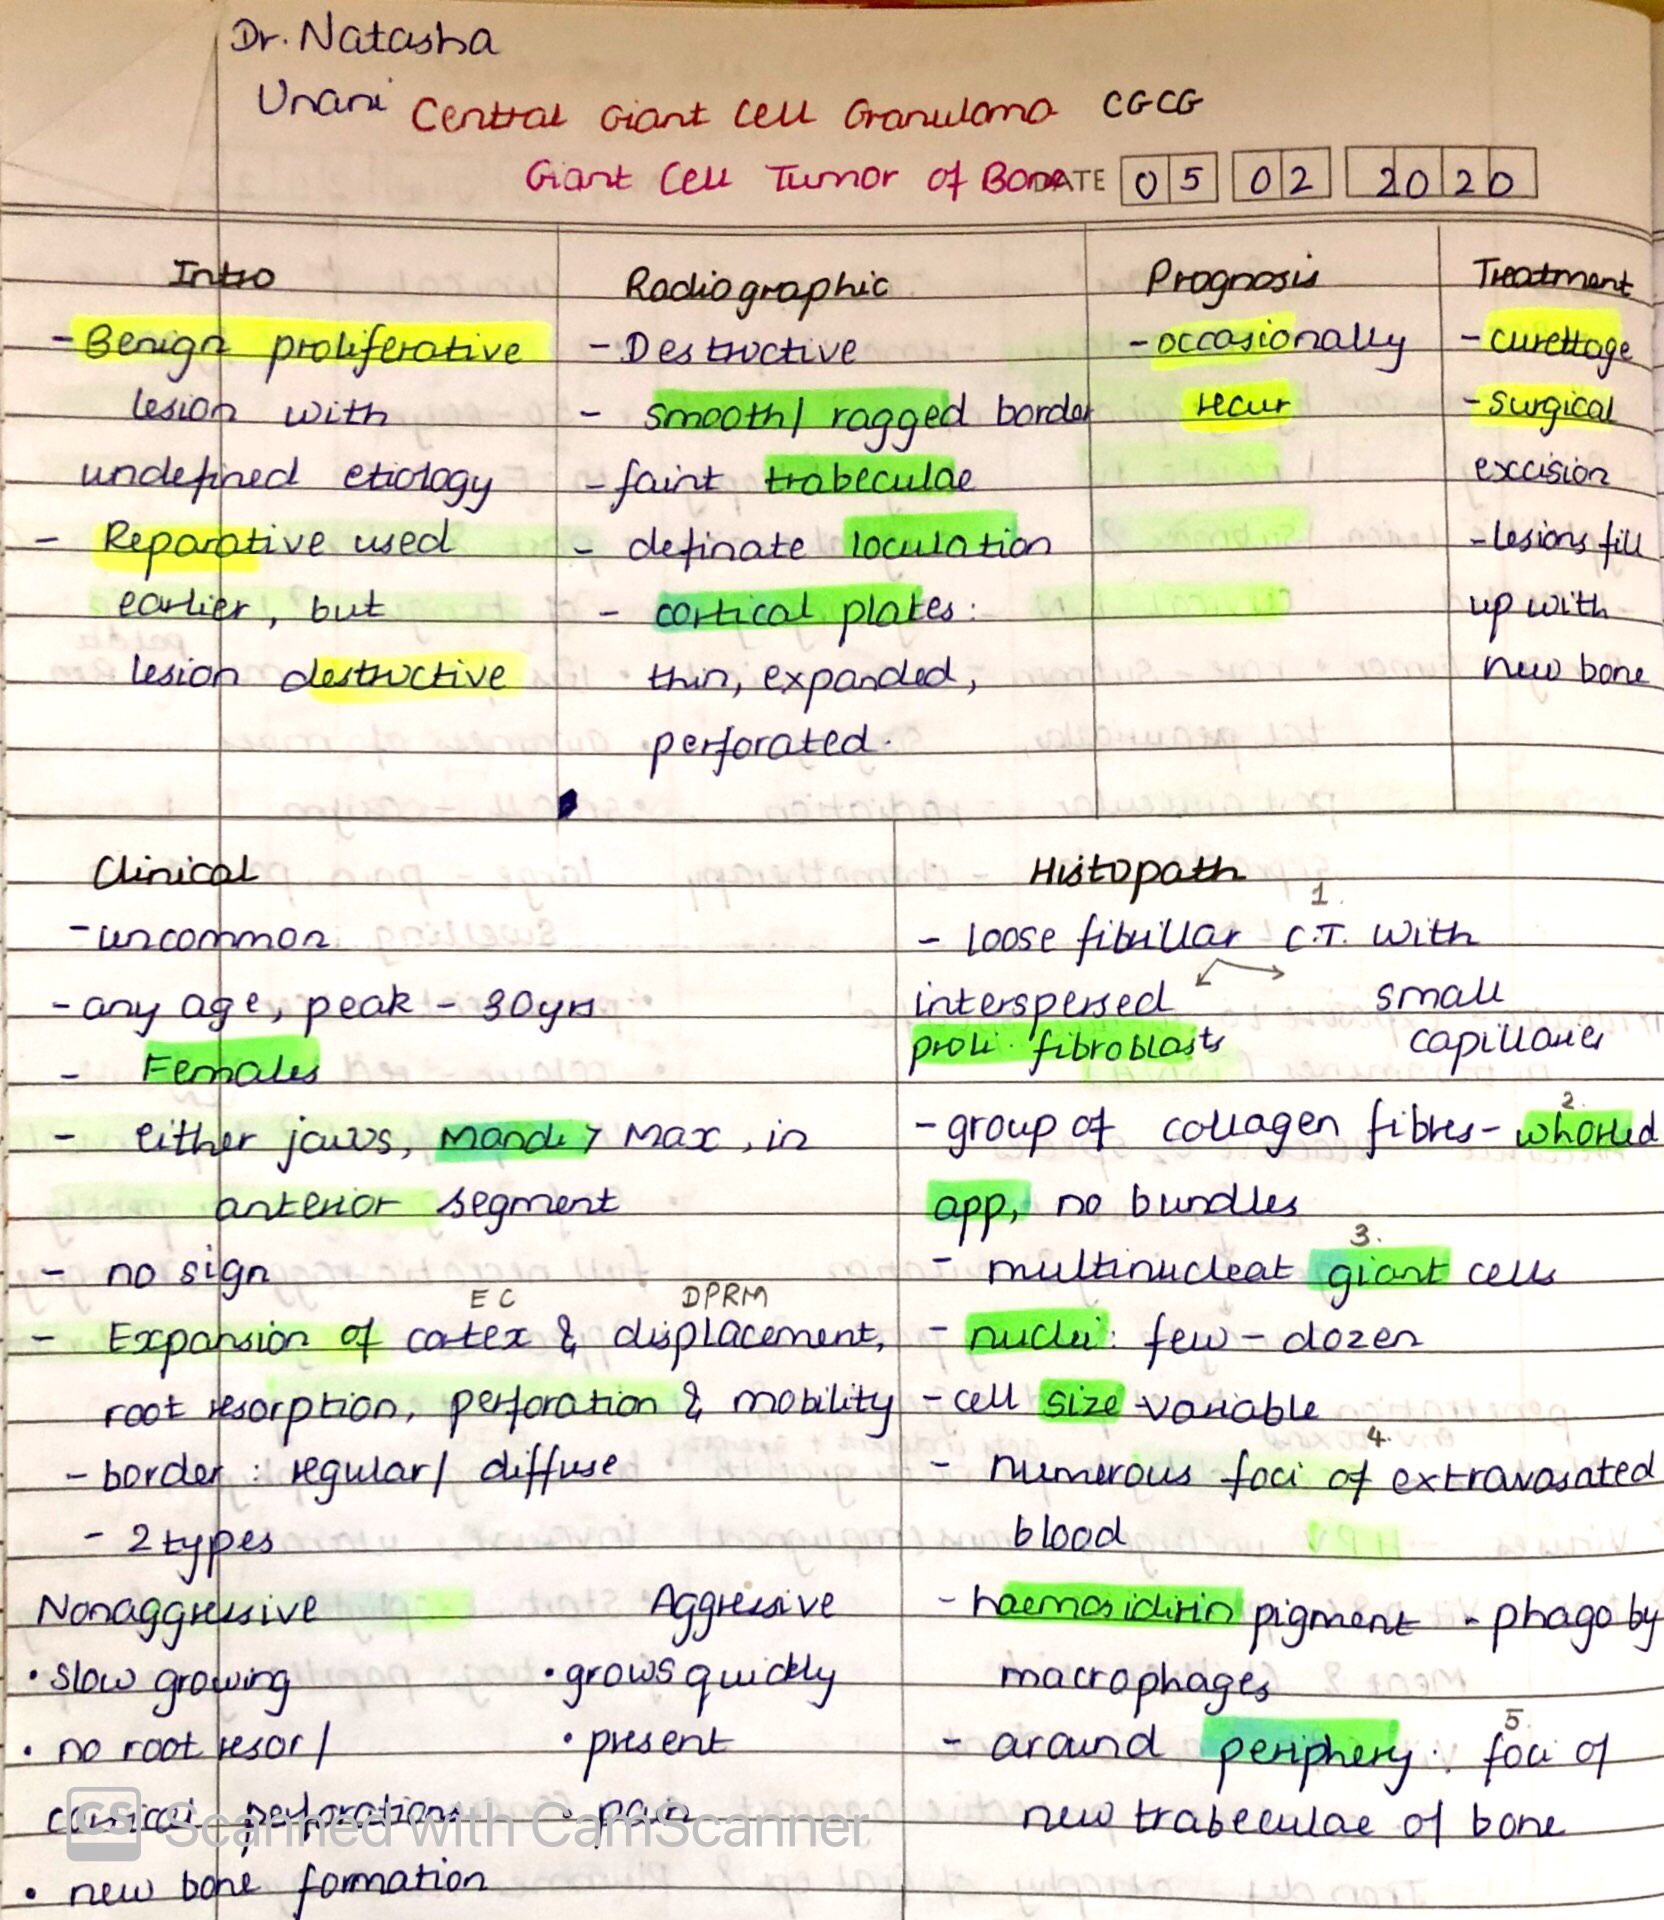 Dr. Natasha
Unani Central Giant Cell Granuloma CGCG
Giant Cell Tumor of Bone DATE 05 02 2020
Intro
- Benign proliferative
lesion with
undefined etiology
- Reparative used
earlier, but
lesion destructive
Radiographic
- Destructive
- smooth/ ragged border
- faint trabeculae
- definate loculation
- cortical plates:
thin, expanded,
perforated.
Prognosis
- occasionally
recur
Treatment
- curettage
- surgical
excision
- lesions fill
up with
new bone
Clinical
- uncommon
- any age, peak - 30yrs
- Females
- either jaws, Mand > Max, in
anterior segment
- no sign
EC DPRM
- Expansion of cortex & displacement,
root resorption, perforation & mobility
- border : regular/ diffuse
- 2 types
Nonaggressive
• slow growing
• no root resor/
cortical perforations
• new bone formation
Aggressive
• grows quickly
• present
• pain
Histopath
1.
- loose fibrillar C.T. with
interspersed small
proli. fibroblasts capillaries
2.
- group of collagen fibres - whorled
app, no bundles
3.
- multinucleat giant cells
- nuclei: few - dozen
- cell size - variable
4.
- numerous foci of extravasated
blood
- haemosidirin pigment - phago by
macrophages
5.
- around periphery: foci of
new trabeculae of bone
CS Scanned with CamScanner